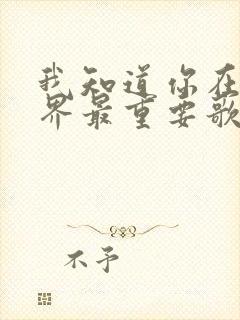 我知道你在
界最重要歌
不予